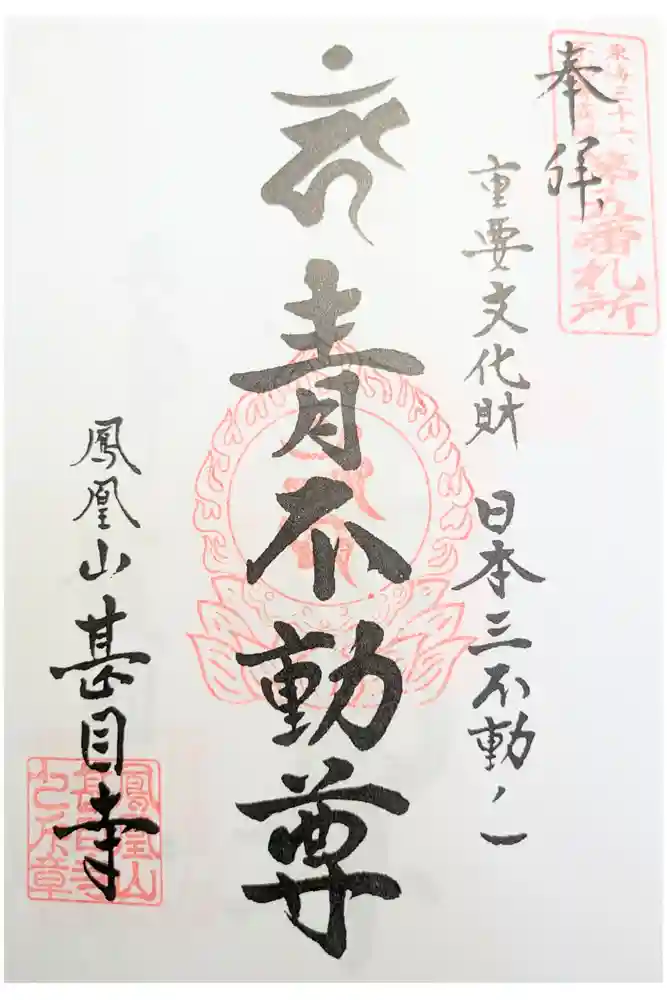 奉拝
東海三十六
第五番札所
重要文化財 日本三不動ノ一
青不動尊
鳳凰山甚目寺
鳳凰山
甚目寺